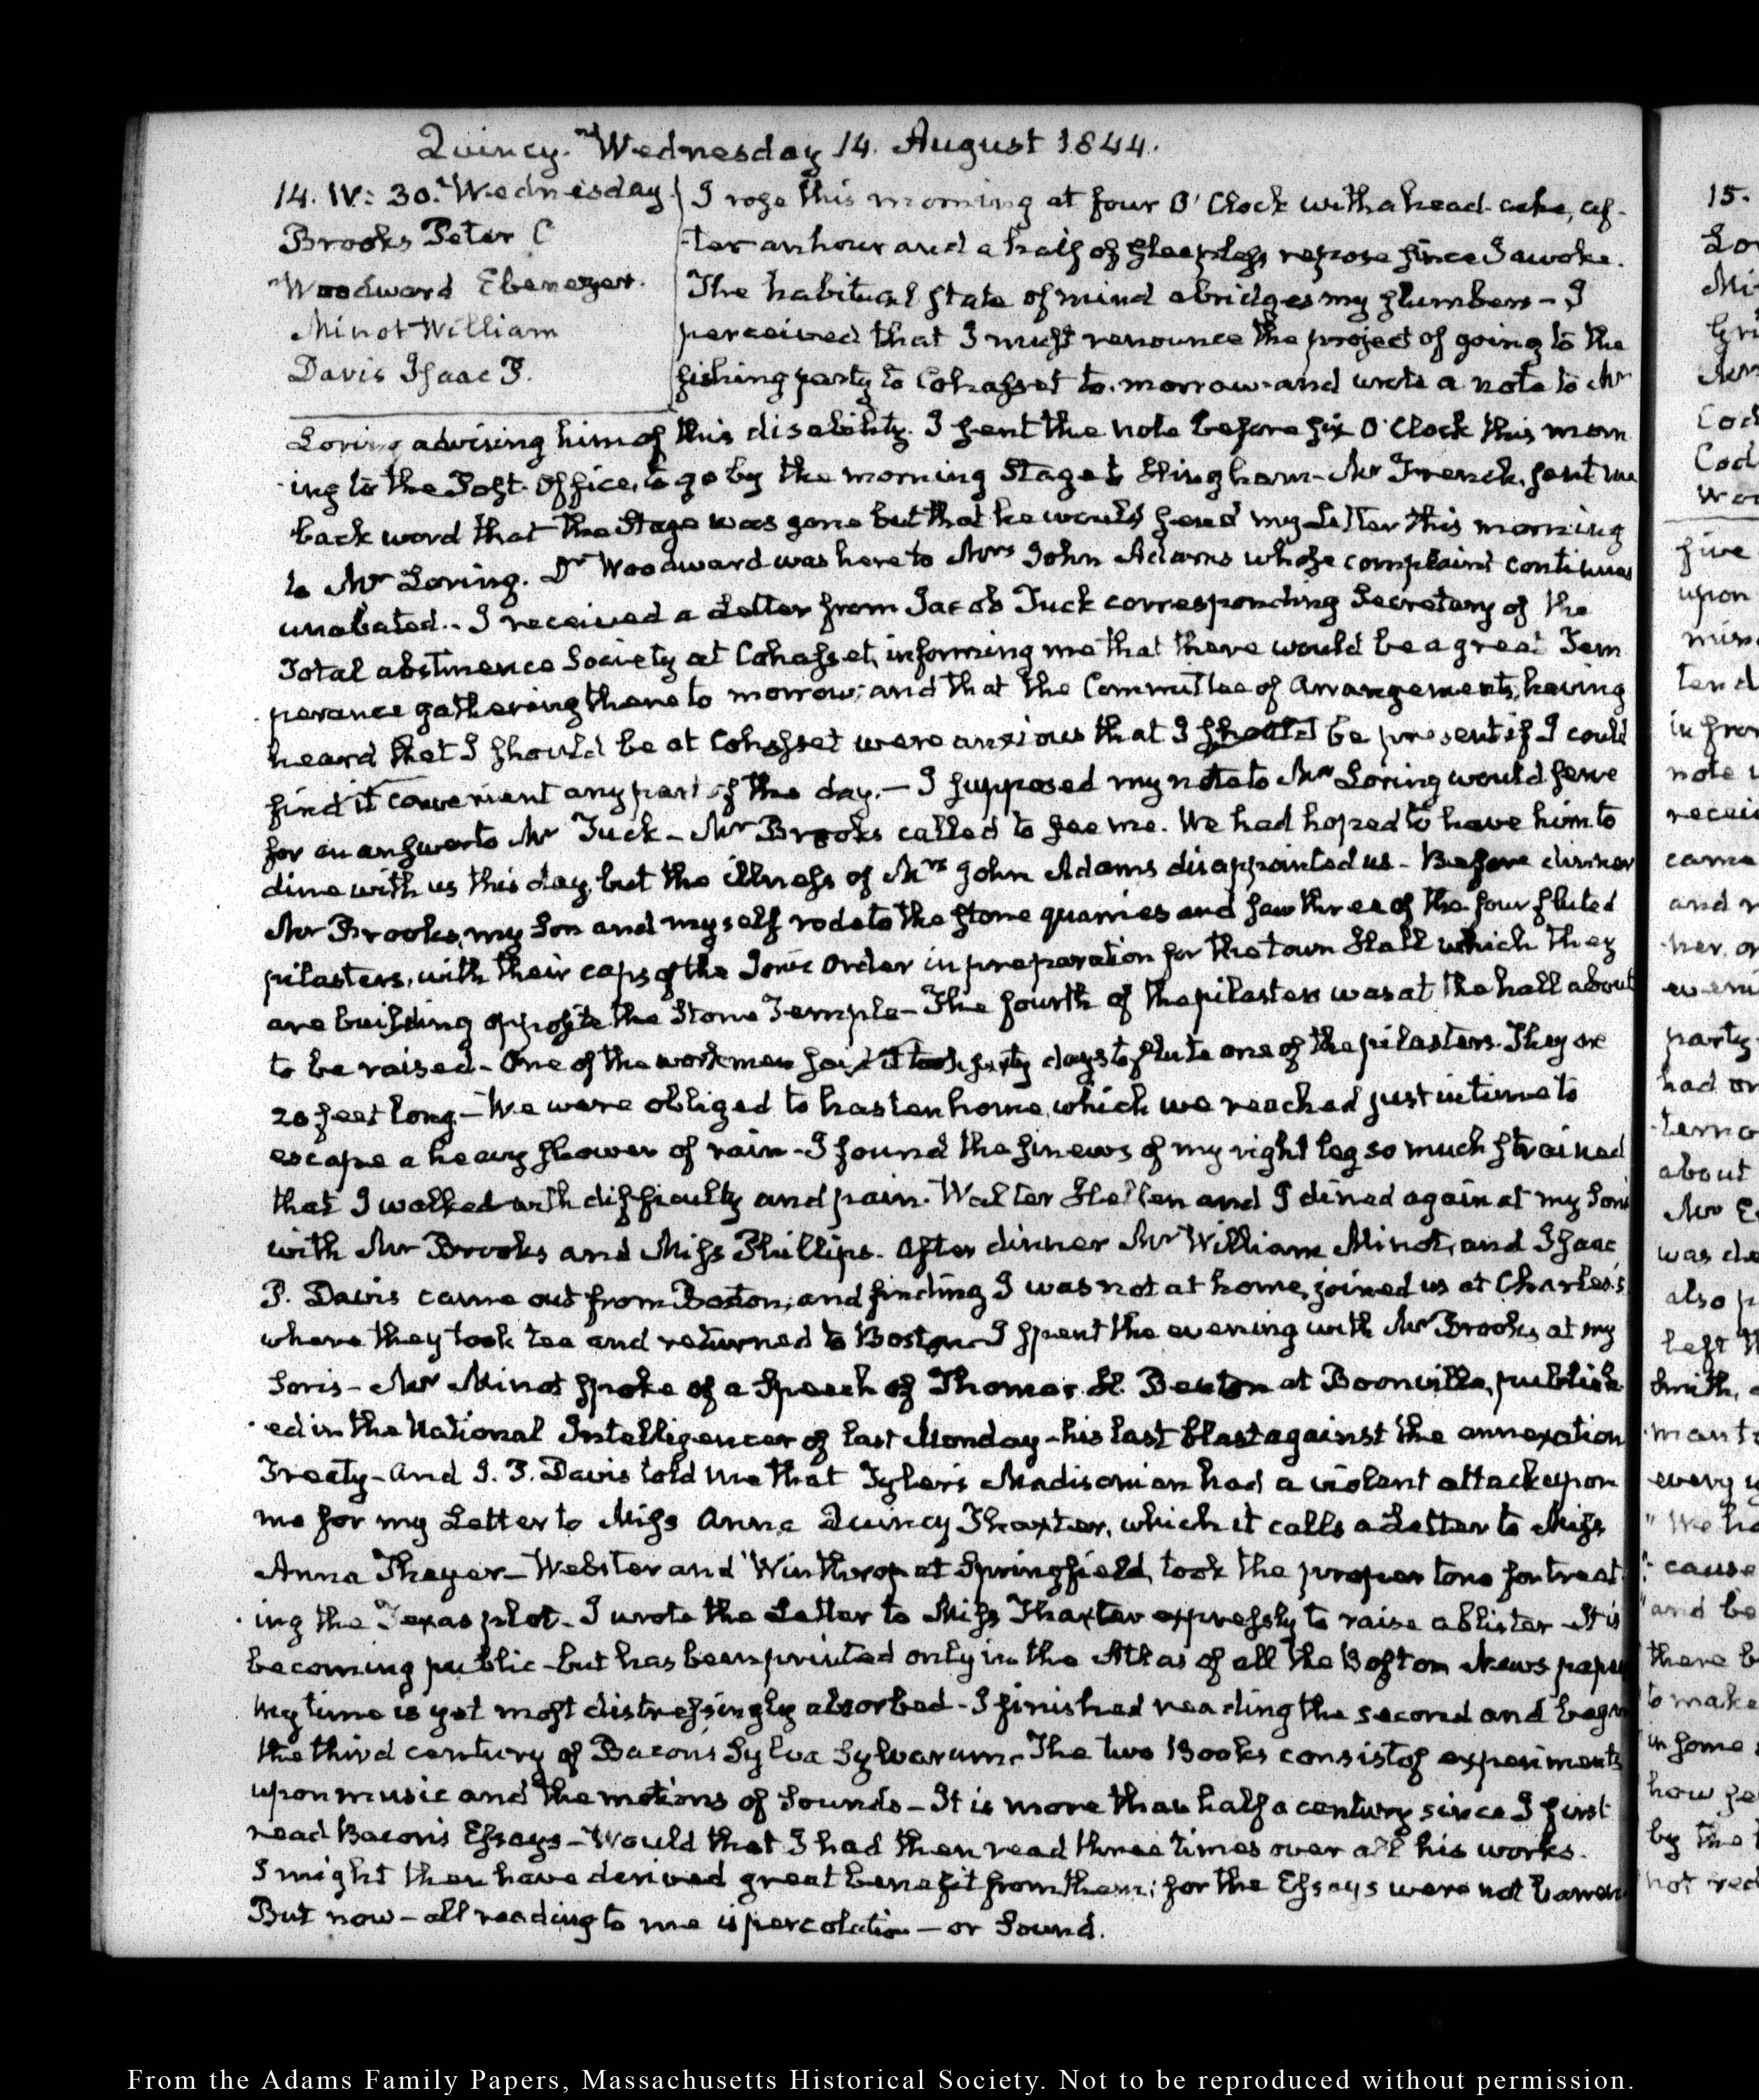 Quincy. Wednesday 14. August 1844.
14. IV: 30. Wednesday.
Brooks Peter C
Woodward Ebenezer.
Minot William
Davis Isaac P.
I rose this morning at four O'Clock with a head-ache, af-
-ter an hour and a half of sleepless repose since I awoke.
The habitual state of mind abridges my slumbers – I
perceived that I must renounce the project of going to the
fishing party to Cohasset to-morrow and wrote a note to Mr
Loring advising him of this disability. I sent the note before six O'Clock this morn
-ing to the Post-Office, to go by the morning Stage to Hingham – Mr French, sent me
back word that the Stage was gone but that he would send my Letter this morning
to Mr Loring. Dr Woodward was here to Mrs John Adams whose complaint continues
unabated.. I received a Letter from Jacob Tuck corresponding Secretary of the
Total abstinence Society at Cohasset, informing me that there would be a great Tem
-perance gathering there to morrow; and that the Committee of Arrangements, having
heard that I should be at Cohasset were anxious that I should be present if I could
find it convenient any part of the day. – I supposed my note to Mr Loring would serve
for an answer to Mr Tuck – Mr Brooks called to see me. We had hoped to have him to
dine with us this day, but the illness of Mrs John Adams disappointed us – Before dinner
Mr Brooks, my Son and myself rode to the stone quarries and saw three of the four fluted
pilasters, with their caps of the Ionic Order in preparation for the town Hall which they
are building opposite the Stone Temple – The fourth of the pilasters was at the hall about
to be raised – One of the workmen said it took sixty days to flute one of the pilasters. They are
20 feet long – We were obliged to hasten home, which we reached just in time to
escape a heavy shower of rain – I found the sinews of my right leg so much strained
that I walked with difficulty and pain. Walter Hellen and I dined again at my Son's
with Mr Brooks and Miss Phillips. After dinner Mr William Minot, and Isaac
P. Davis came out from Boston; and finding I was not at home, joined us at Charles's
where they took tea and returned to Boston – I spent the evening with Mr Brooks at my
Son's – Mr Minot spoke of a Speech of Thomas H. Benton at Boonville, publish
-ed in the National Intelligencer of last Monday – his last blast against the annexation
Treaty – And I. P. Davis told me that Tyler's Madisonian had a violent attack upon
me for my Letter to Miss Anna Quincy Thaxter, which it calls a Letter to Miss
Anna Thayer – Webster and Winthrop at Springfield, took the proper tone for treat
-ing the Texas plot. I wrote the Letter to Miss Thaxter expressly to raise a blister – It is
becoming public – but has been printed only in the Atlas of all the Boston News papers
My time is yet most distressingly absorbed – I finished reading the second and began
the third century of Bacon's Sylva Sylvarum. The two Books consist of experiments
upon music and the motions of Sounds – It is more than half a century since I first
read Bacon's Essays – Would that I had then read three times over all his works.
I might then have derived great benefit from them; for the Essays were not barren
But now – all reading to me is percolation – or Sound.
15.
five
upon
note
and
party
had
about
was
also
left
every
cause
and be
there
to make
in some
how
by the
From the Adams Family Papers, Massachusetts Historical Society. Not to be reproduced without permission.